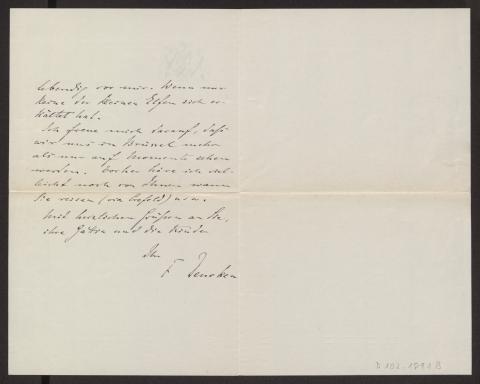 lebendig vor mir. Wenn nur
keine der kleinen Elfen sich er-
kältet hat.
Ich freue mich darauf, daß
wir uns in Brüssel mehr
als nur auf Momente sehen
werden. Vorher höre ich viel-
leicht noch von Ihnen wann
Sie reisen (via Crefeld) usw.
Mit herzlichen Grüßen an Sie,
ihre und die Kinder
Ihr
F Deneken
D 102-1791 B